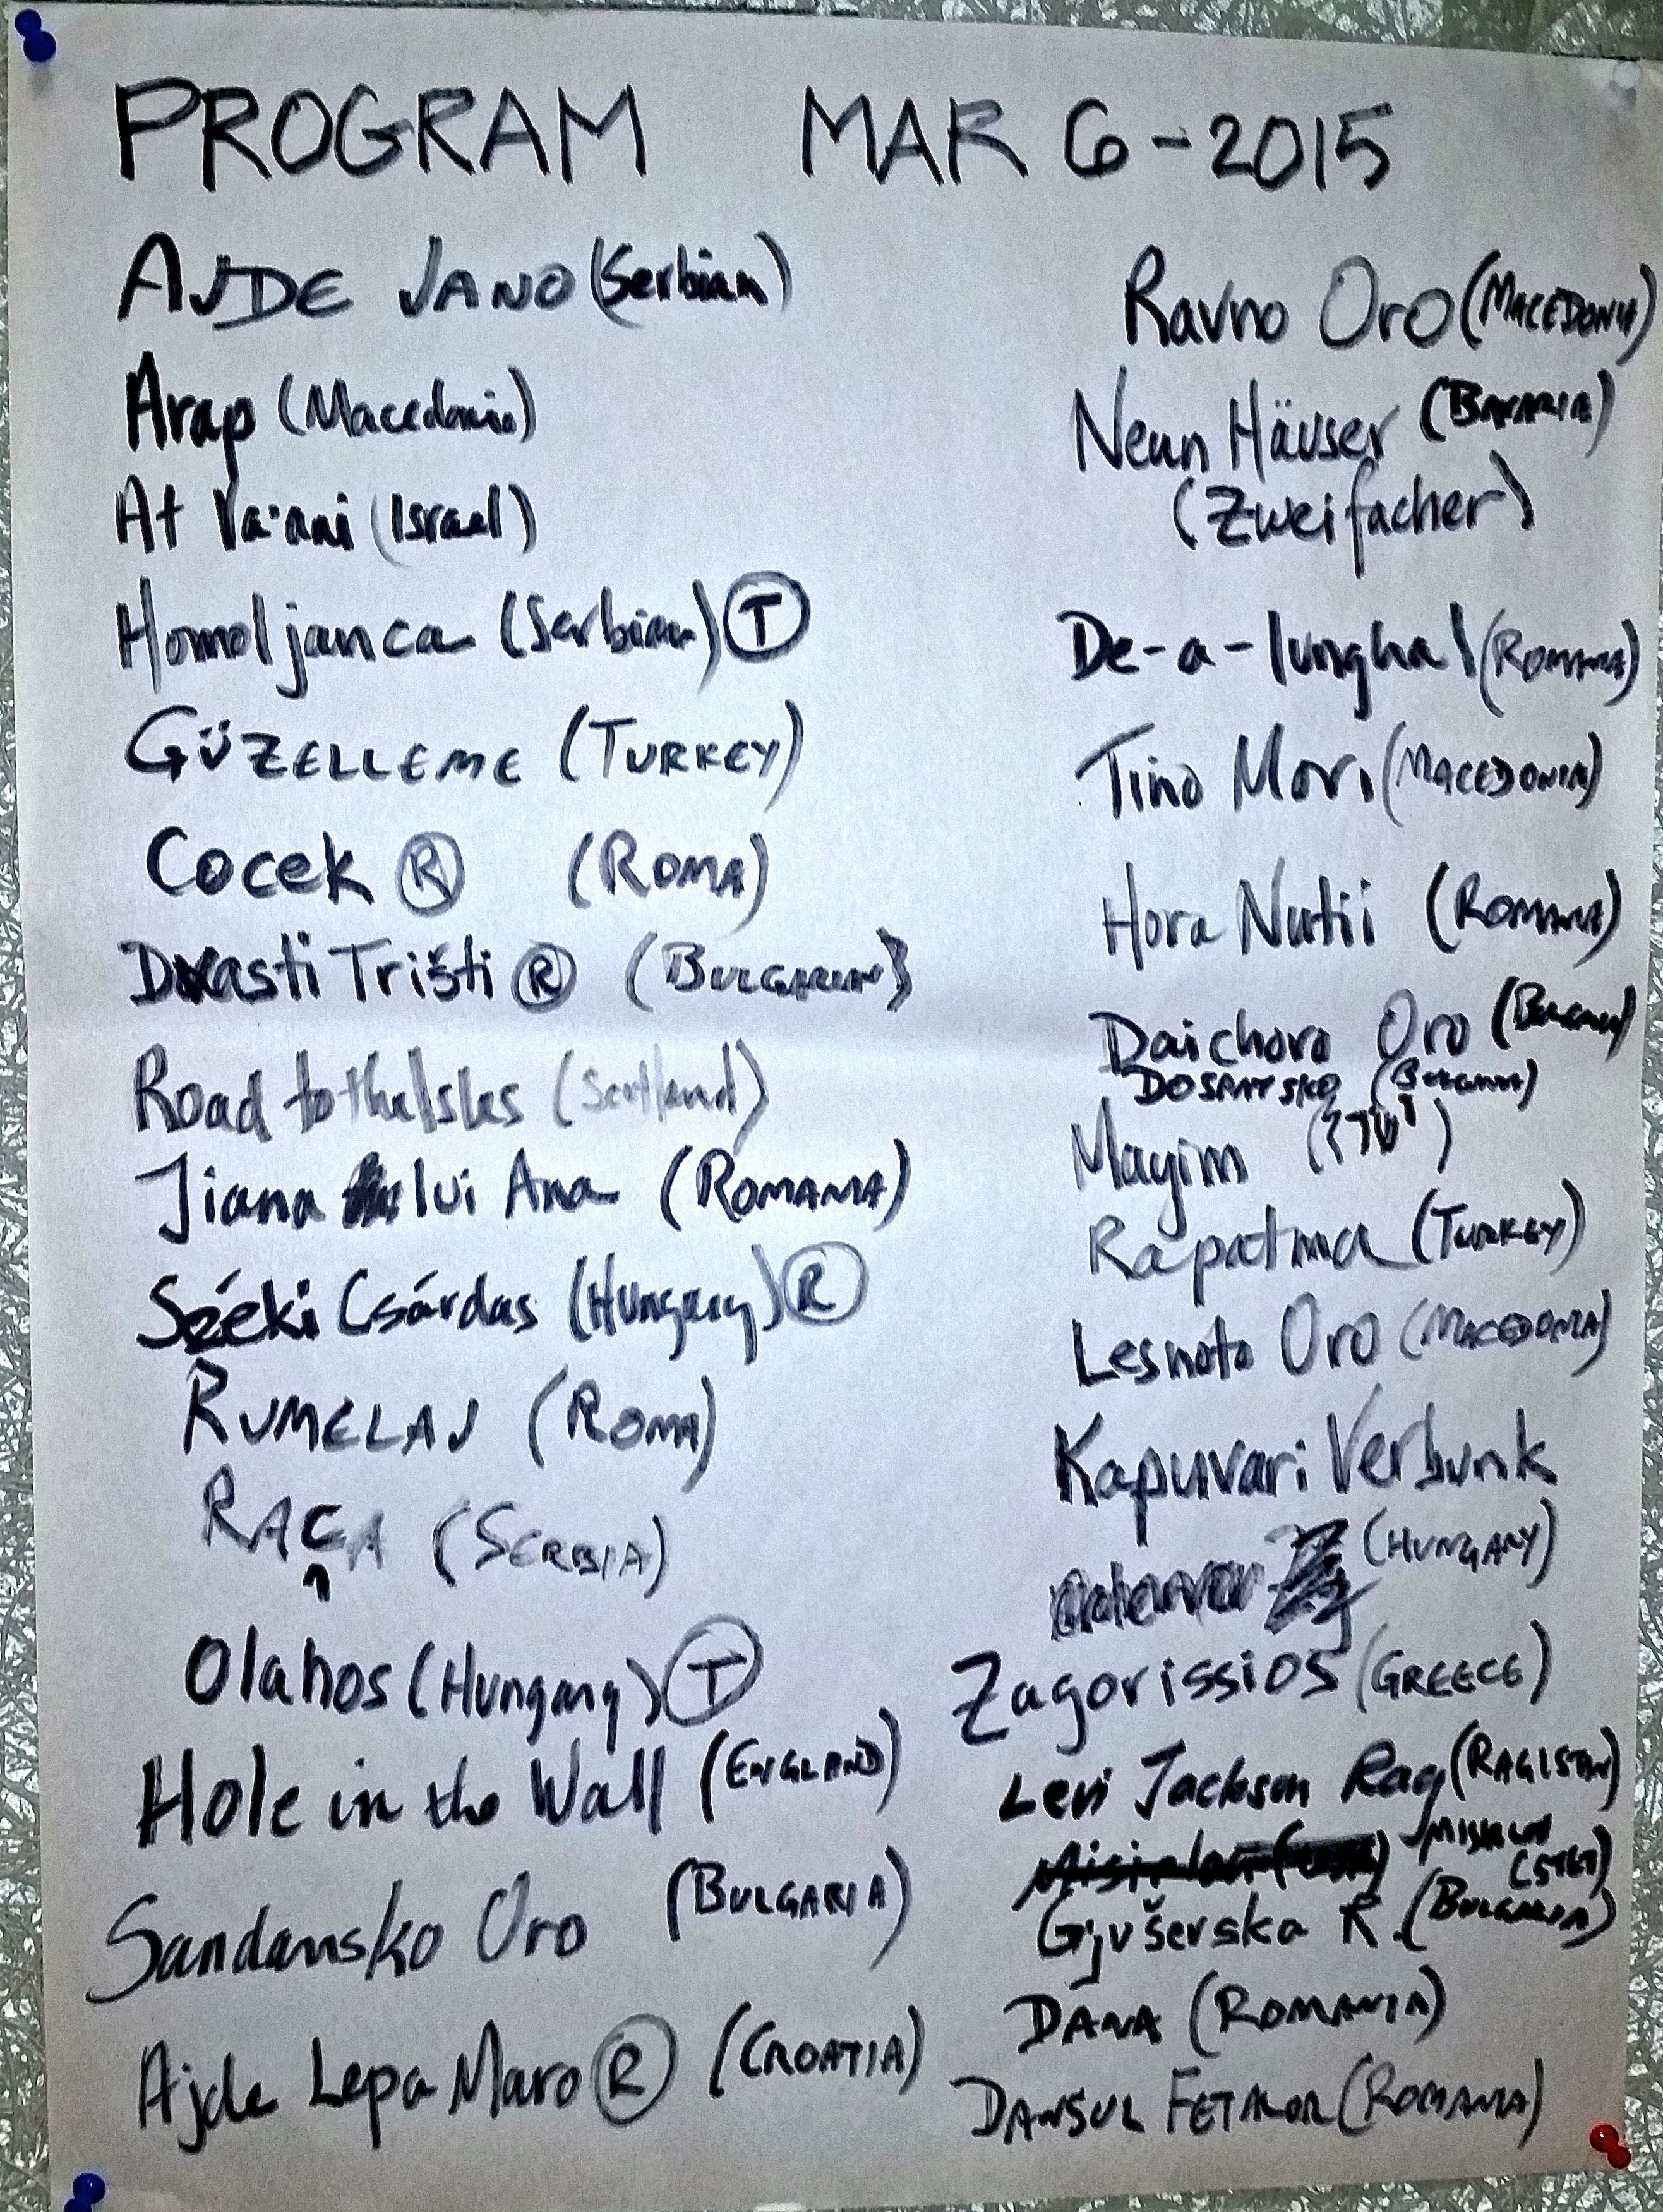 PROGRAM MAR 6-2015
AJDE JANO (Serbian)
Arap (Macedonia)
At Va'ani (Israel)
Homoljanca (Serbian) T
GÜZELLEME (TURKEY)
Cocek R (ROMA)
Dxasti Trišti R (BULGARIAN)
Road to the Isles (Scotland)
Jiana lui Ana (ROMANIA)
Széki Csárdas (Hungary) R
RUMELAJ (ROMA)
RAČA (SERBIA)
Olahos (Hungary) T
Hole in the Wall (ENGLAND)
Sandansko Oro (BULGARIA)
Ajde Lepa Maro R (CROATIA)
Ravno Oro (MACEDONIA)
Neun Häuser (BAVARIA)
(Zweifacher)
De-a-lungul (ROMANIA)
Tino Mori (MACEDONIA)
Hora Nutii (ROMANIA)
Daichovo Oro (BULGARIA)
DOSPATSKO (BULGARIA)
Mayim
Rapatma (TURKEY)
Lesnoto Oro (MACEDONIA)
Kapuvari Verbunk
(HUNGARY)
Zagorissios (GREECE)
Levi Jackson Rag (RAGISTAN)
MISIRLOU
(STET)
Gjuševska R. (BULGARIA)
DANA (ROMANIA)
DANSUL FETELOR (ROMANIA)